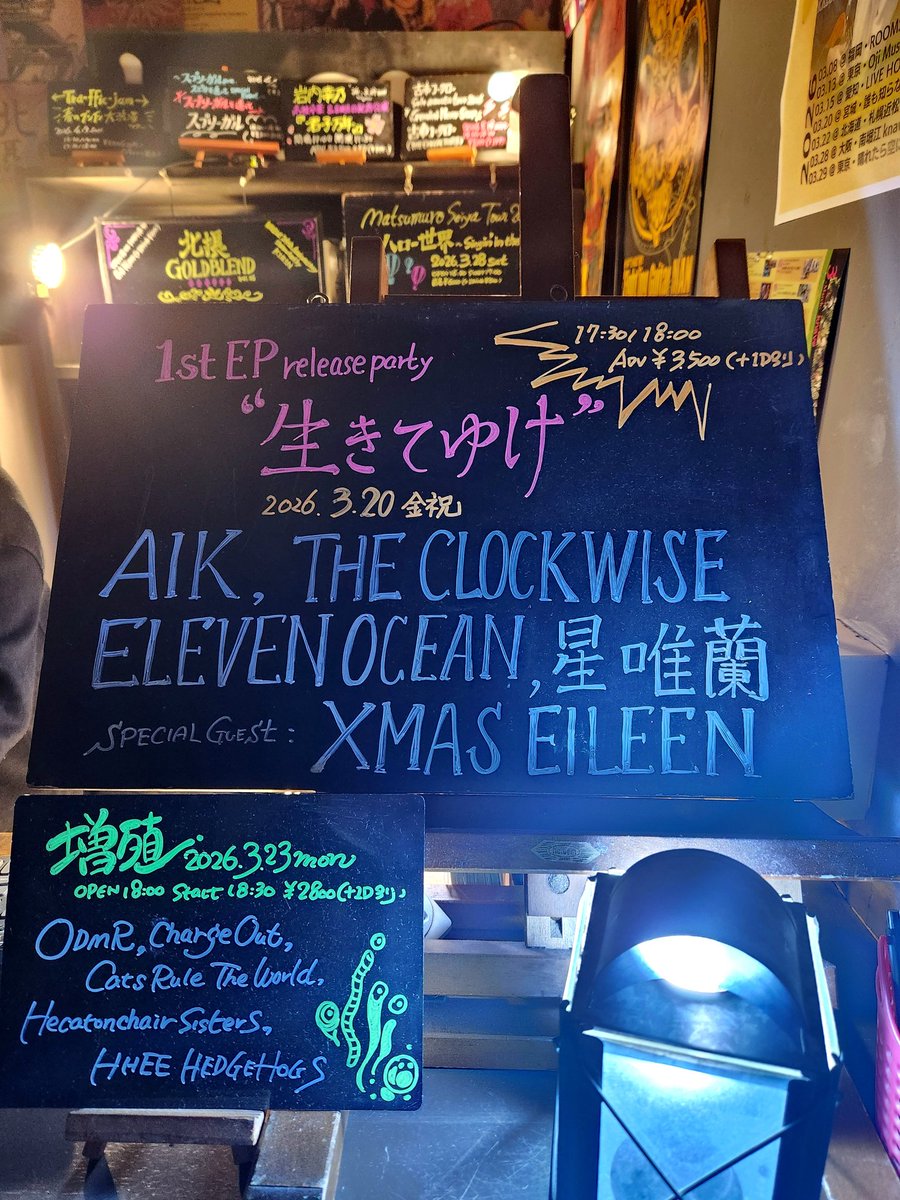 Traffic Jam
岩内幸乃
北摂
GOLDBLEND
Matsumuro Seiya Tour
ハロー世界~Singin' in the
2026.3.28 sat
2026
03.08 @ 福岡・ROOMS
03.13 @ 東京・Oji Mus
03.15 @ 愛知・LIVE HO
03.20 @ 宮城・誰も知らな
03.22 @ 北海道・札幌近松
03.28 @ 大阪・南堀江 knav
03.29 @ 東京・晴れたら空に
1st EP release party
17:30/18:00
Adv ¥3,500(+1D別)
“生きてゆけ”
2026.3.20 金祝
AIK, THE CLOCKWISE
ELEVEN OCEAN, 星唯蘭
SPECIAL GUEST: XMAS EILEEN
増殖 2026.3.23 mon
OPEN 18:00 Start 18:30 ¥2800(+1D別)
ODMR, Charge Out,
Cats Rule The World,
Hecatonchair Sisters,
HHEE HEDGEHOGS